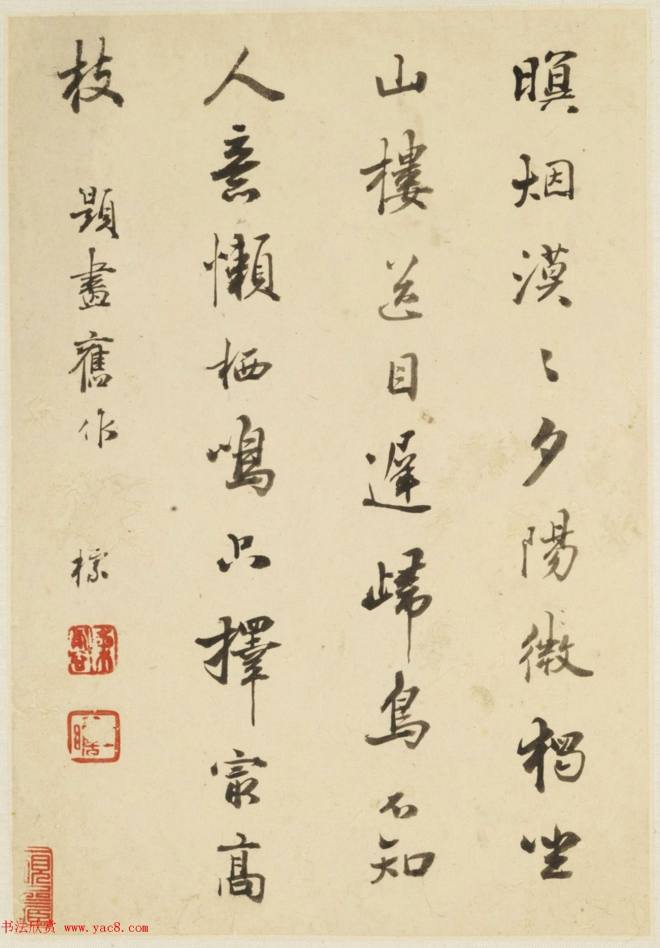 暝烟漠〻夕陽微獨坐
山樓送目遲歸鳥不知
人意懶栖鳴只擇寂高
枝
題畫舊作
櫟
书法欣赏 www.yac8.com